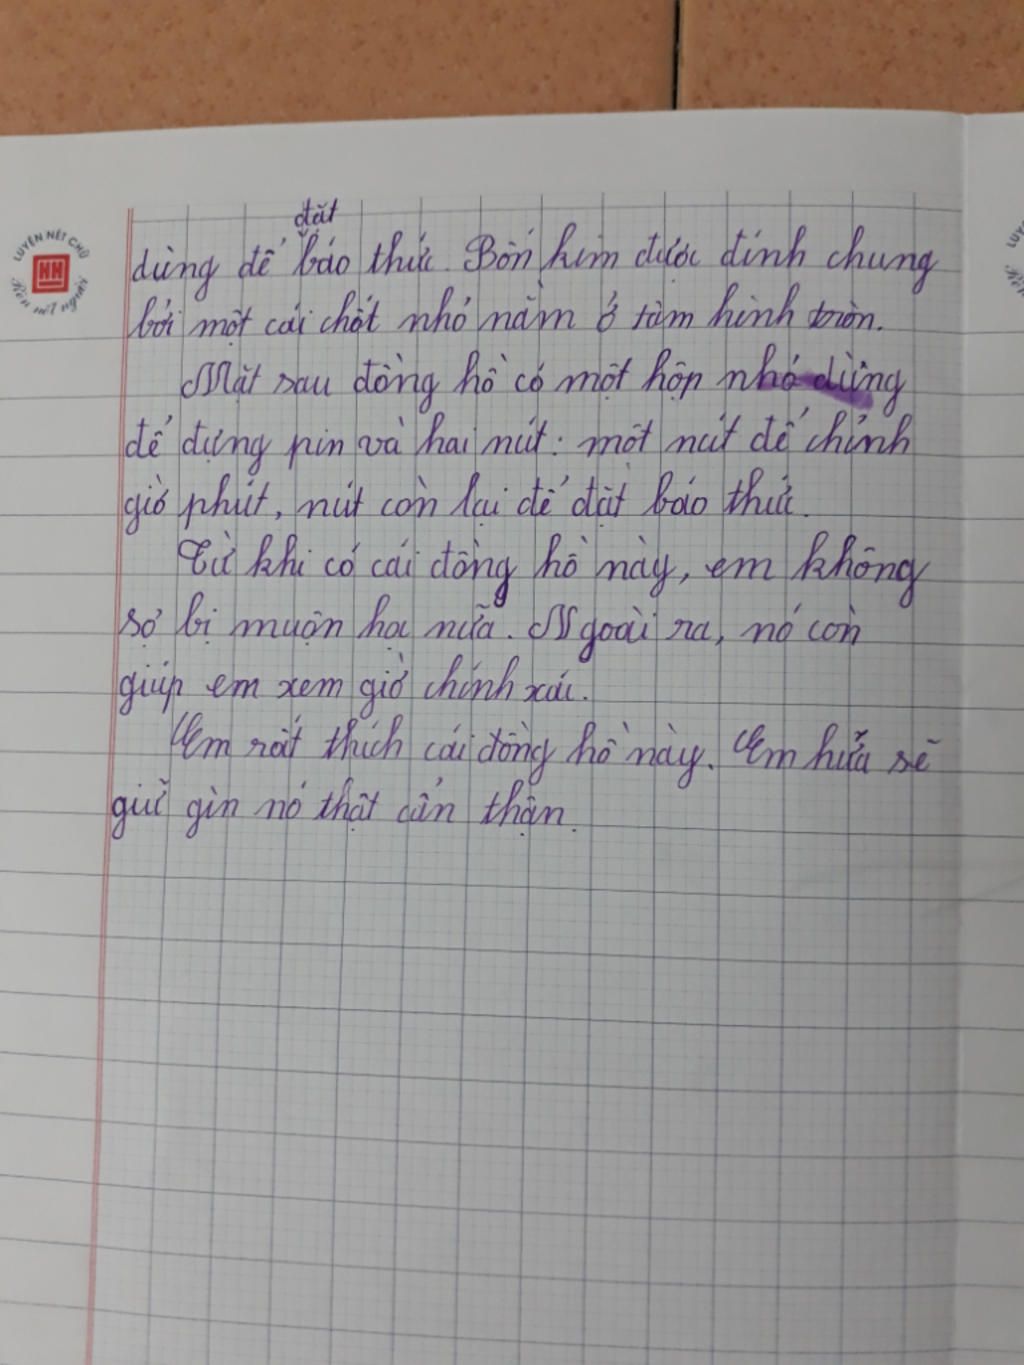 LUYỆN NÉT CHỮ
HH
Rèn nết người
đặt
dùng để báo thức. Bốn kim được đính chung
bởi một cái chốt nhỏ nằm ở tâm hình tròn.
Mặt sau đồng hồ có một hộp nhỏ dùng
để đựng pin và hai nút: một nút để chỉnh
giờ phút, nút còn lại để đặt báo thức.
Từ khi có cái đồng hồ này, em không
sợ bị muộn học nữa. Ngoài ra, nó còn
giúp em xem giờ chính xác.
Em rất thích cái đồng hồ này. Em hứa sẽ
giữ gìn nó thật cẩn thận.